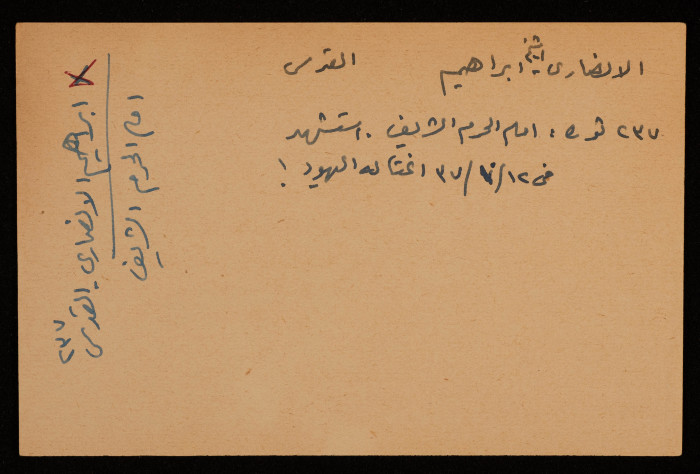 الانصاري الشيخ ابراهيم القدس
٢٣٧ ثوره : امام الحرم الشريف . استشهد
في ١٢/٧/٣٧ اغتاله اليهود !
ابراهيم الانصاري - القدس
٢٣٧
امام الحرم الشريف